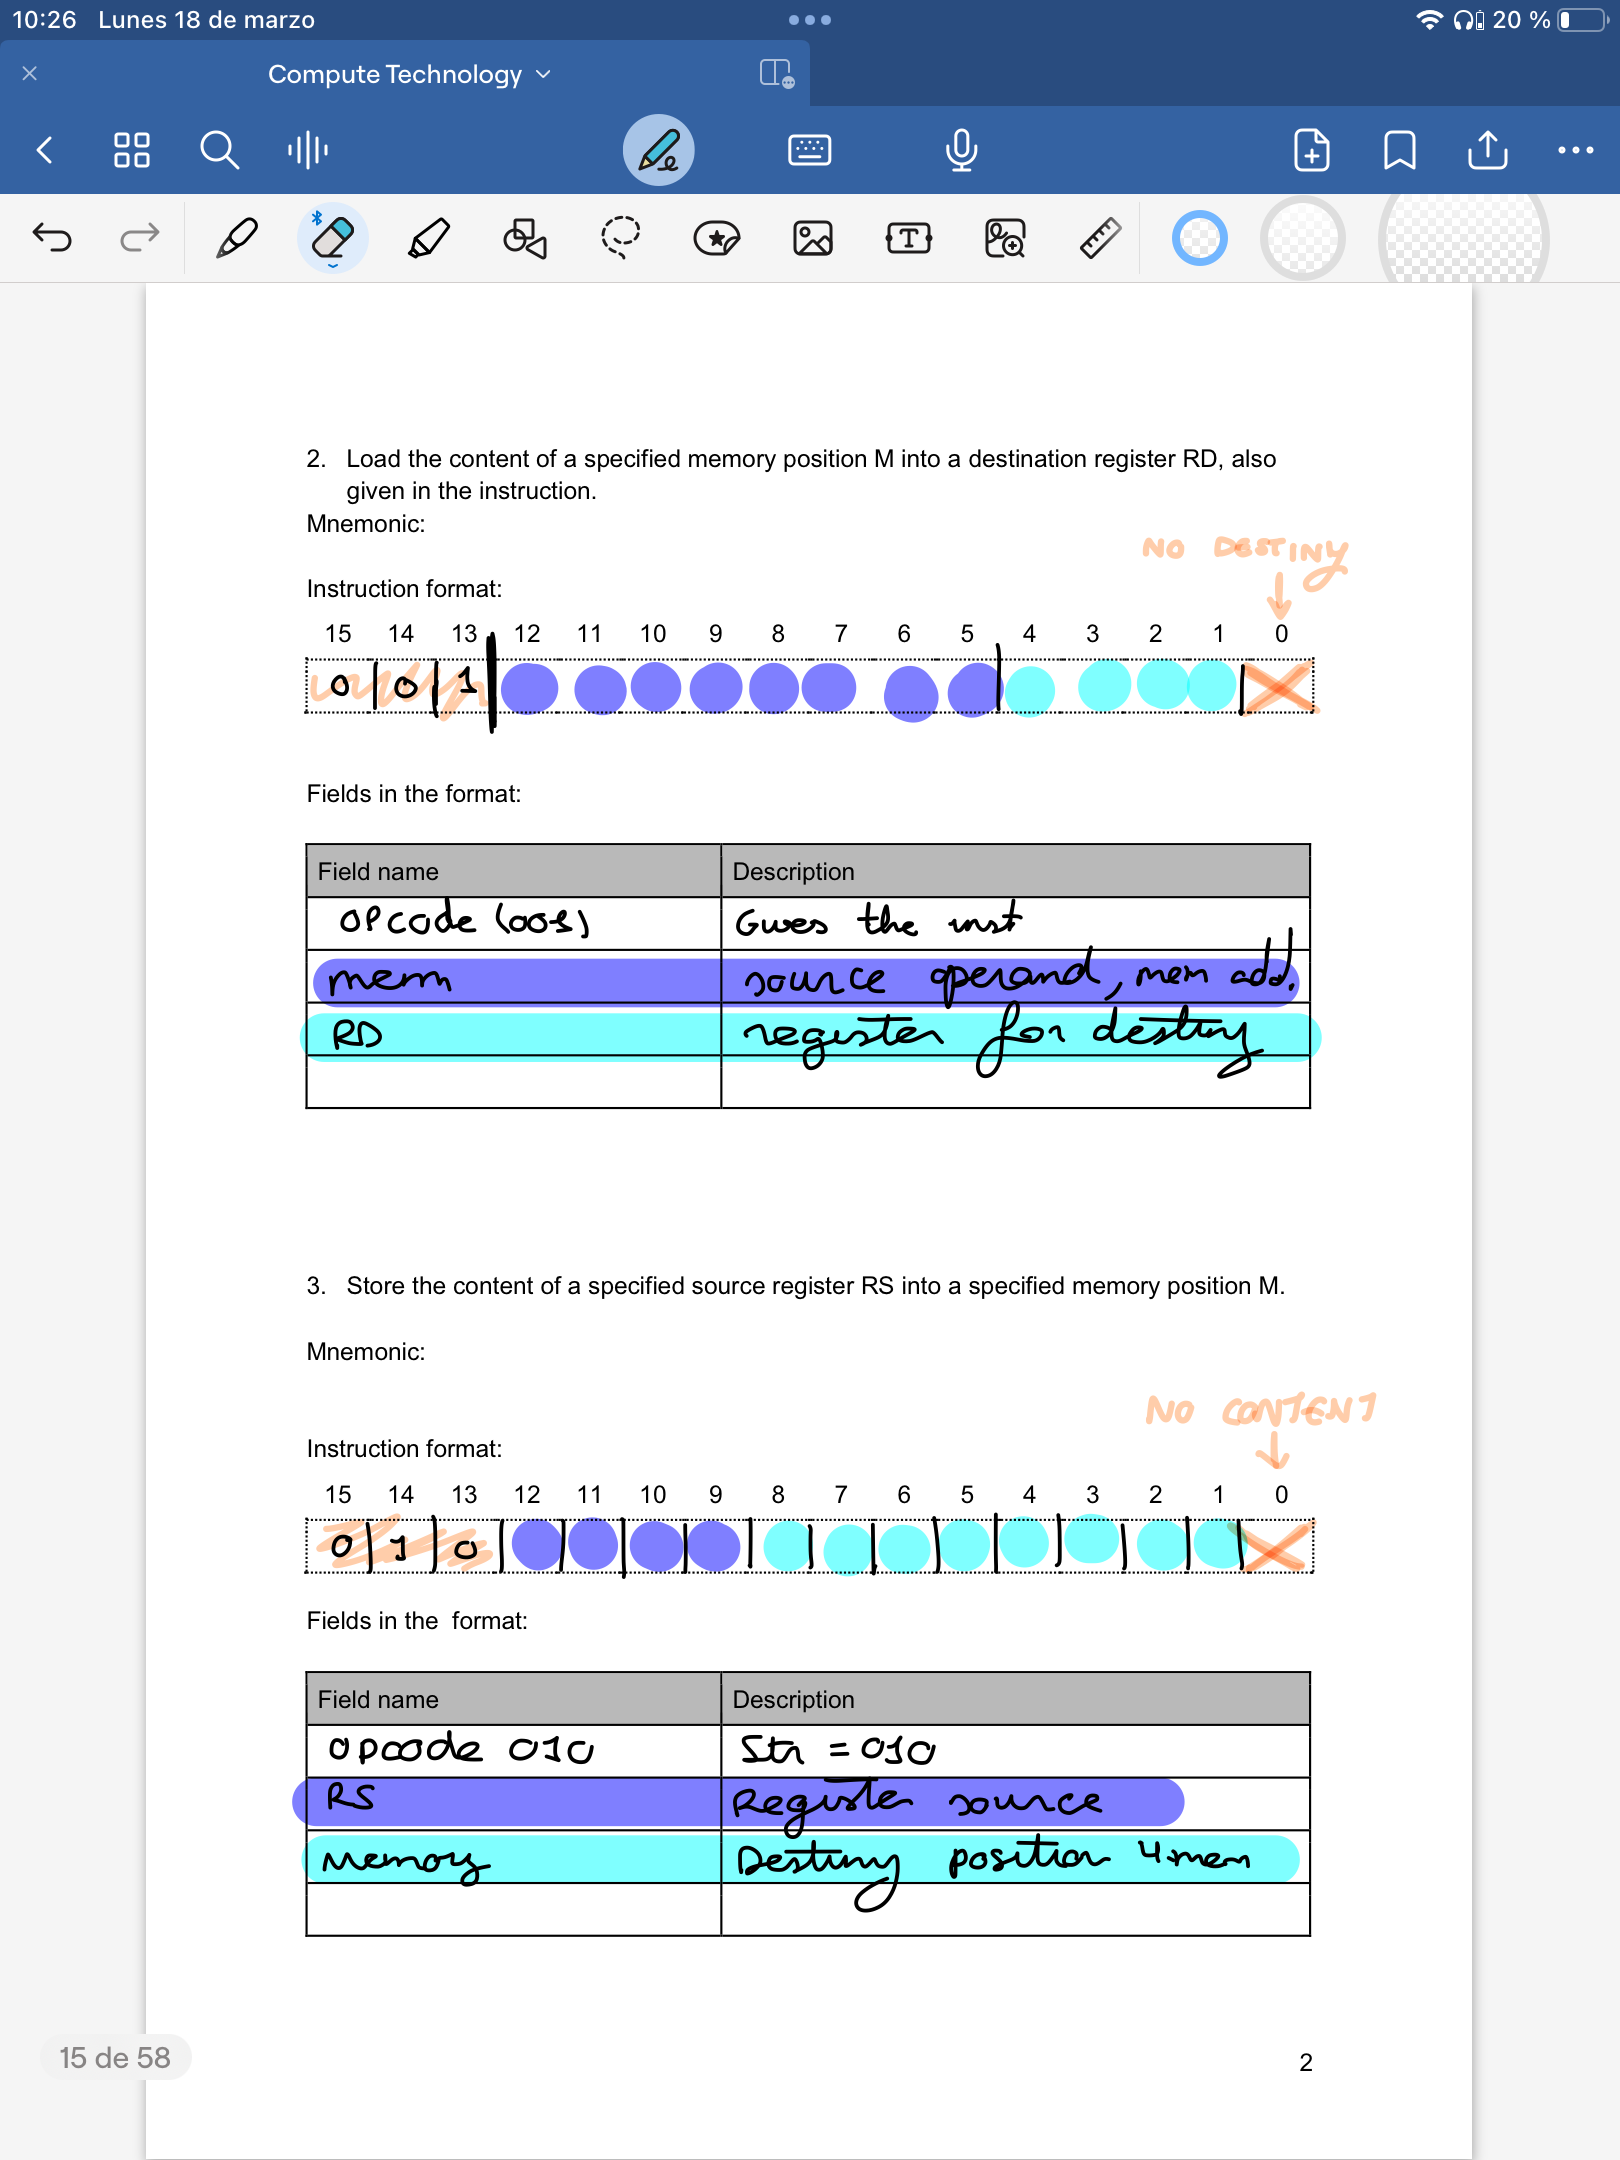 10:26 Lunes 18 de marzo 20 %
Compute Technology
2. Load the content of a specified memory position M into a destination register RD, also
given in the instruction.
Mnemonic:
NO DESTINY
Instruction format:
15 14 13 12 11 10 9 8 7 6 5 4 3 2 1 0
0 0 1
Fields in the format:
Field name Description
OPcode (001) Gives the inst
mem source operand, mem add.
RD register for destiny
3. Store the content of a specified source register RS into a specified memory position M.
Mnemonic:
NO CONTENT
Instruction format:
15 14 13 12 11 10 9 8 7 6 5 4 3 2 1 0
0 1 0
Fields in the format:
Field name Description
opcode 010 Str = 010
RS Register source
Memory Destiny position 4 mem
15 de 58
2